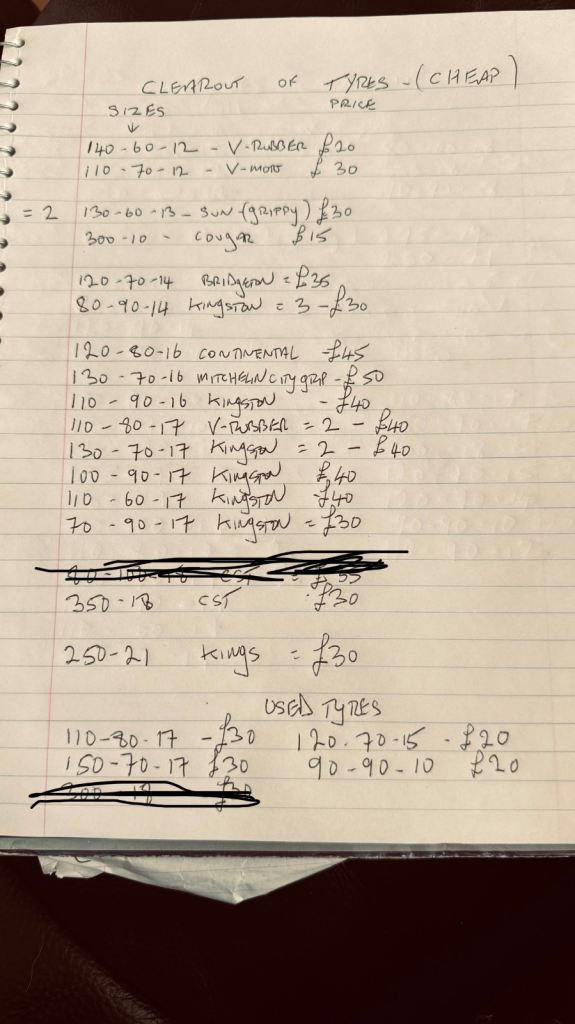 CLEAROUT OF TYRES - (CHEAP)
SIZES PRICE
140-60-12 - V-RUBBER £20
110-70-12 - V-MOTO £30
= 2 130-60-13 - SUN (GRIPPY) £30
300-10 - COUGAR £15
120-70-14 BRIDGETON = £35
80-90-14 KINGSTON = 3 - £30
120-80-16 CONTINENTAL - £45
130-70-16 MITCHELIN CITY GRIP - £50
110-90-16 KINGSTON - £40
110-80-17 V-RUBBER = 2 - £40
130-70-17 KINGSTON = 2 - £40
100-90-17 KINGSTON £40
110-60-17 KINGSTON - £40
70-90-17 KINGSTON = £30
350-18 CST £30
250-21 KINGS = £30
USED TYRES
110-80-17 - £30 120.70-15 - £20
150-70-17 £30 90-90-10 £20